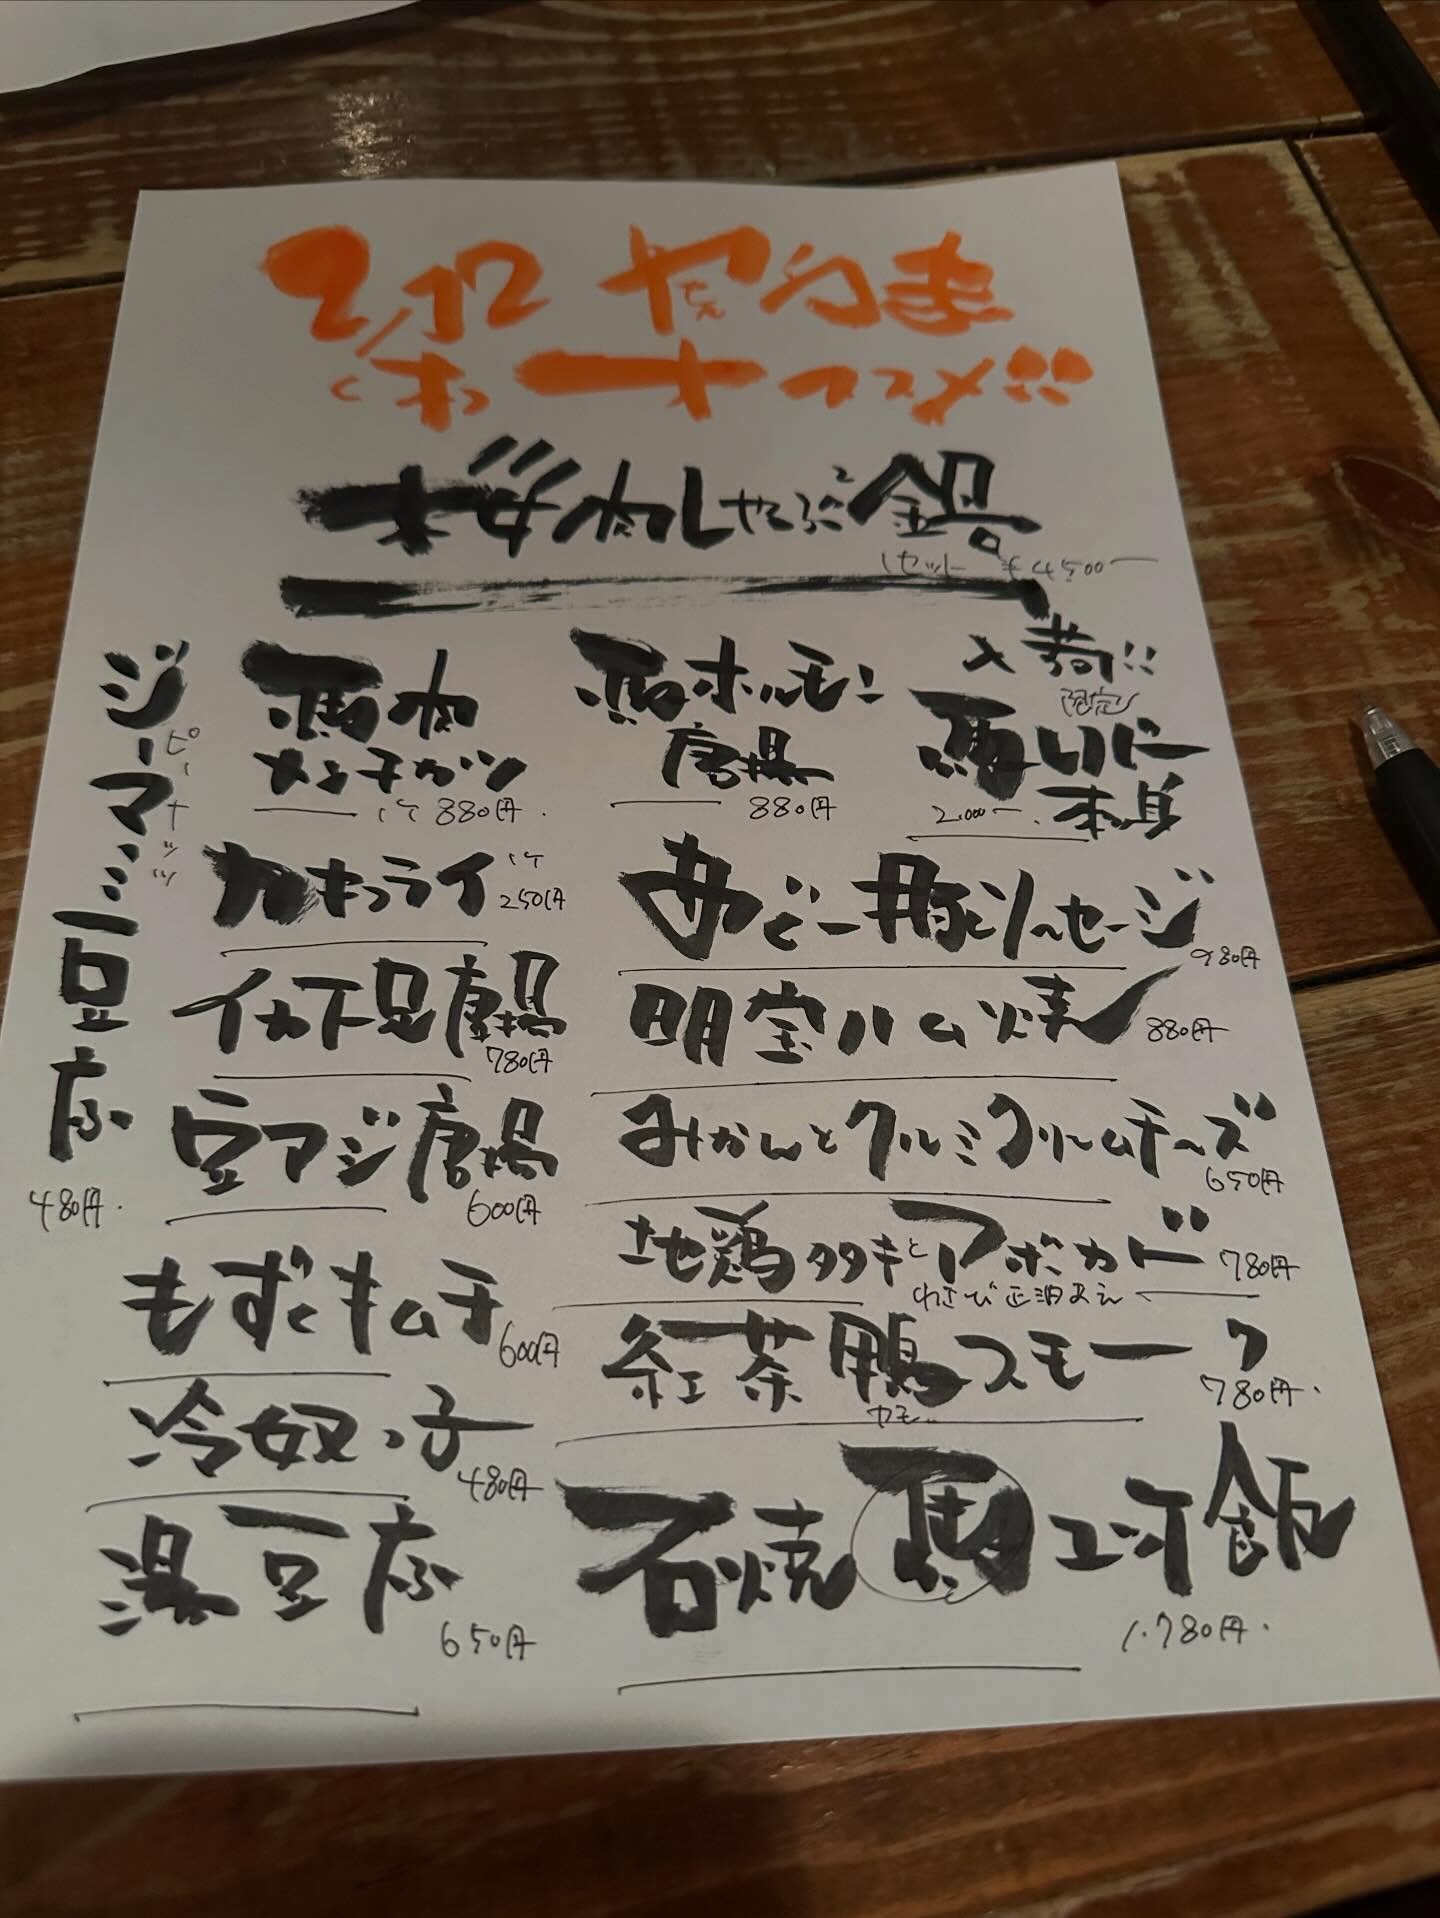 2/12 やんちゃるま
く木っ オススメ!!
桜肉しゃぶしゃぶ鍋
1セット ¥4500ー
馬肉
メンチカツ
1ケ 880円.
馬ホルモン
唐揚
880円
入荷!!
限定
馬リバー
本刺
2,000ー.
ジーマミ豆腐
ピーナッツ
480円.
カキフライ 1ケ
250円
イカ下足唐揚
780円
豆アジ唐揚
600円
もずくキムチ
600円
冷奴っ子
480円
湯豆腐
650円
あぐー豚ソーセージ
980円
明宝ハム焼
880円
みかんとクルミクリームチーズ
650円
地鶏タタキとアボカド 780円
わさび正油あえ
紅茶鴨スモーク
カモ
780円.
石焼馬ユッケ飯
1.780円.